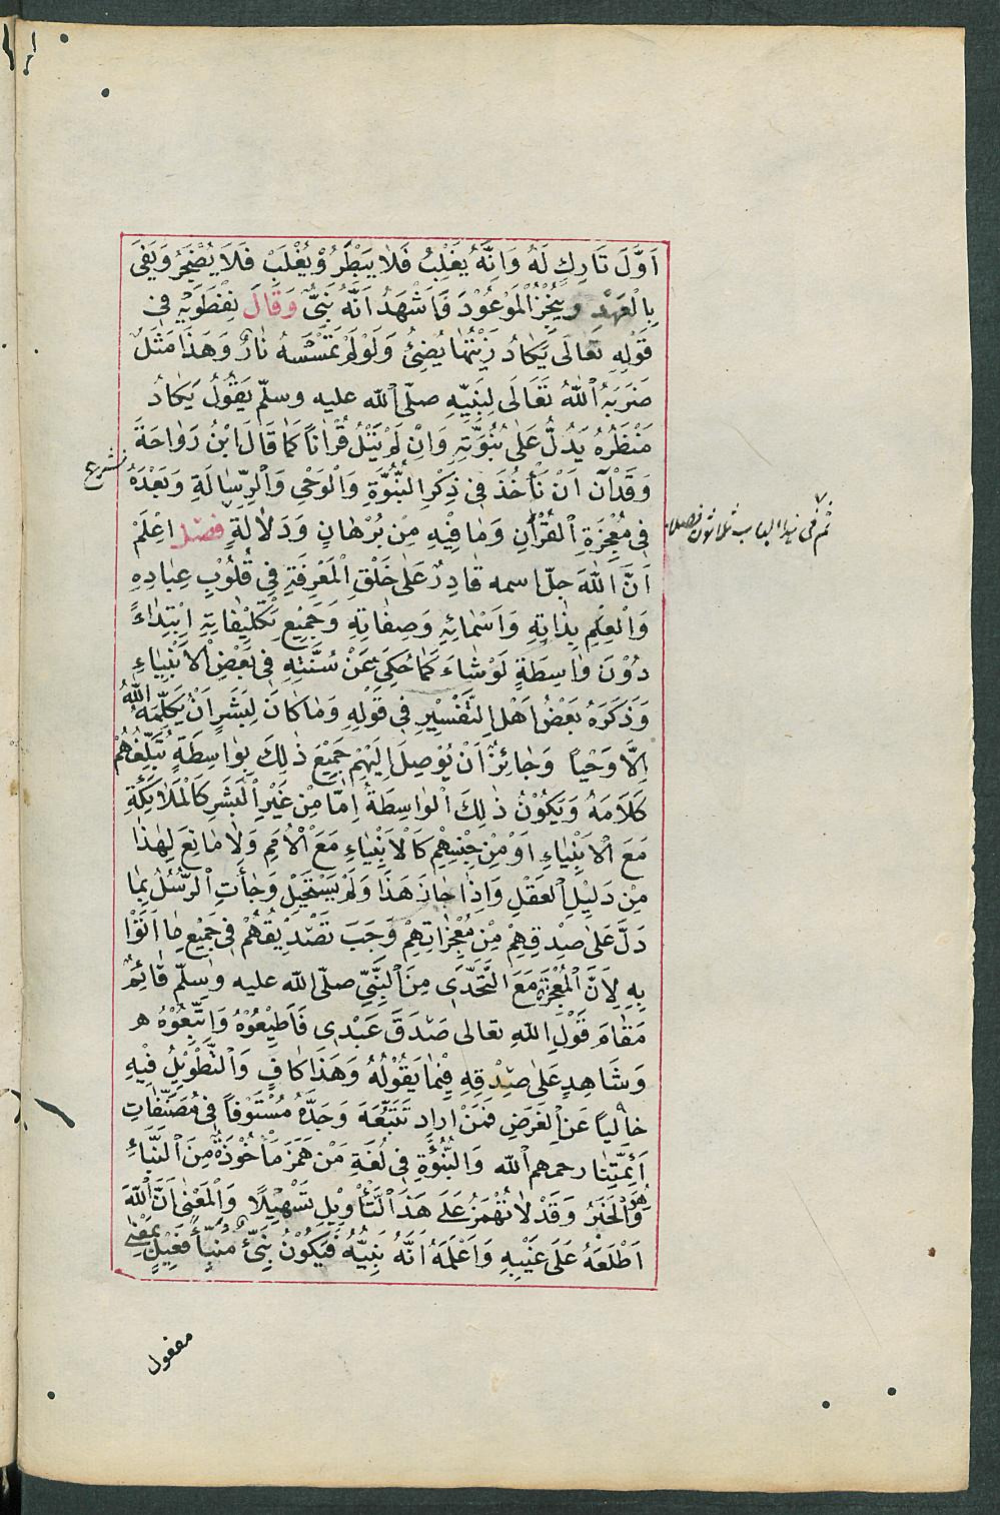 اَوَّلَ تَارِكٍ لَهُ وَاِنَّهُ يَغْلِبُ فَلَا يَبْطَرُ وَيُغْلَبُ فَلَا يُضْجَرُ وَيَفِىَ
بِالْعَهْدِ وَيُنْجِزُ الْمَوْعُوْدَ وَاَشْهَدُ اَنَّهُ نَبِىٌّ وَقَالَ نِفْطَوَيْهِ فِى
قَوْلِهِ تَعَالَى يَكَادُ زَيْتُهَا يُضِئُ وَلَوْلَمْ تَمْسَسْهُ نَارٌ وَهَذَا مَثَلٌ
ضَرَبَهُ اللّٰهُ تَعَالَى لِنَبِيِّهِ صلّى الله عليه وسلّم يَقُوْلُ يَكَادُ
مَنْظَرُهُ يَدُلُّ عَلٰى نُبُوَّتِهِ وَاِنْ لَمْ يَتْلُ قُرْاٰناً كَمَا قَالَ ابْنُ رَوَاحَةَ
وَقَدْ آنَ اَنْ نَأْخُذَ فِى ذِكْرِ النُّبُوَّةِ وَالْوَحْىِ وَالرِّسَالَةِ وَبَعْدَهُ
فِى مُعْجِزَةِ الْقُرْاٰنِ وَمَا فِيْهِ مِنْ بُرْهَانٍ وَدَلَالَةٍ فَصْل اِعْلَمْ
اَنَّ اللّٰهَ جلّ اسمه قَادِرٌ عَلَى خَلْقِ الْمَعْرِفَةِ فِى قُلُوْبِ عِبَادِهِ
وَالْعِلْمِ بِذَاتِهِ وَاَسْمَائِهِ وَصِفَاتِهِ وَجَمِيْعِ تَكْلِيْفَاتِهِ اِبْتِدَاءً
دُوْنَ وَاسِطَةٍ لَوْ شَاءَ كَمَا حُكِىَ عَنْ سُنَّتِهِ فِى بَعْضِ الْاَنْبِيَاءِ
وَذَكَرَهُ بَعْضُ اَهْلِ التَّفْسِيْرِ فِى قَوْلِهِ وَمَا كَانَ لِبَشَرٍ اَنْ يُكَلِّمَهُ اللّٰهُ
اِلَّا وَحْياً وَجَائِزٌ اَنْ يُوْصِلَ اِلَيْهِمْ جَمِيْعَ ذٰلِكَ بِوَاسِطَةٍ تُبَلِّغُهُمْ
كَلَامَهُ وَيَكُوْنُ ذٰلِكَ الْوَاسِطَةُ اِمَّا مِنْ غَيْرِ الْبَشَرِ كَالْمَلَائِكَةِ
مَعَ الْاَنْبِيَاءِ اَوْ مِنْ جِنْسِهِمْ كَالْاَنْبِيَاءِ مَعَ الْاُمَمِ وَلَا مَانِعَ لِهٰذَا
مِنْ دَلِيْلِ الْعَقْلِ وَاِذَا جَازَ هَذَا وَلَمْ يَسْتَحِيْلْ وَجَأَتِ الرُّسُلُ بِمَا
دَلَّ عَلٰى صِدْقِهِمْ مِنْ مُعْجِزَاتِهِمْ وَجَبَ تَصْدِيْقُهُمْ فِى جَمِيْعِ مَا اَتَوْا
بِهِ لِاَنَّ الْمُعْجِزَةَ مَعَ التَّحَدِّى مِنَ النَّبِىِّ صلّى الله عليه وسلّم قَائِمٌ
مَقَامَ قَوْلِ اللّٰهِ تعالى صَدَقَ عَبْدِى فَاَطِيْعُوْهُ وَاتَّبِعُوْهُ ھ
وَشَاهِدٍ عَلٰى صِدْقِهِ فِيْمَا يَقُوْلُهُ وَهَذَا كَافٍ وَالتَّطْوِيْلُ فِيْهِ
خَالياً عَنِ الْغَرَضِ فَمَنْ اراد تَتَبُّعَهَ وَجَدَهُ مُسْتَوْفاً فِى مُصَنَّفَاتِ
اَئِمَّتِنَا رحمهم الله وَالنُّبُوْءَةِ فِى لُغَةِ مَنْ هَمَزَ مَأْخُوْذَةٌ مِنَ النَّبَاءِ
وَهُوَ الْخَبَرُ وَقَدْ لَا تُهْمَزُ عَلَى هَذَا التَّأْوِيْلِ تَسْهِيْلًا وَالْمَعْنٰى اَنَّ اللّٰهَ
اَطْلَعَهُ عَلَى غَيْبِهِ وَاَعْلَمَهُ اَنَّهُ نَبِيُّهُ فَيَكُوْنُ نَبِىٌّ مُنَبَّأً فَعِيْلٌ بِمَعْنٰى
مفعول
نشرع
ثم فى هذا الباب ثلاثون فصلا